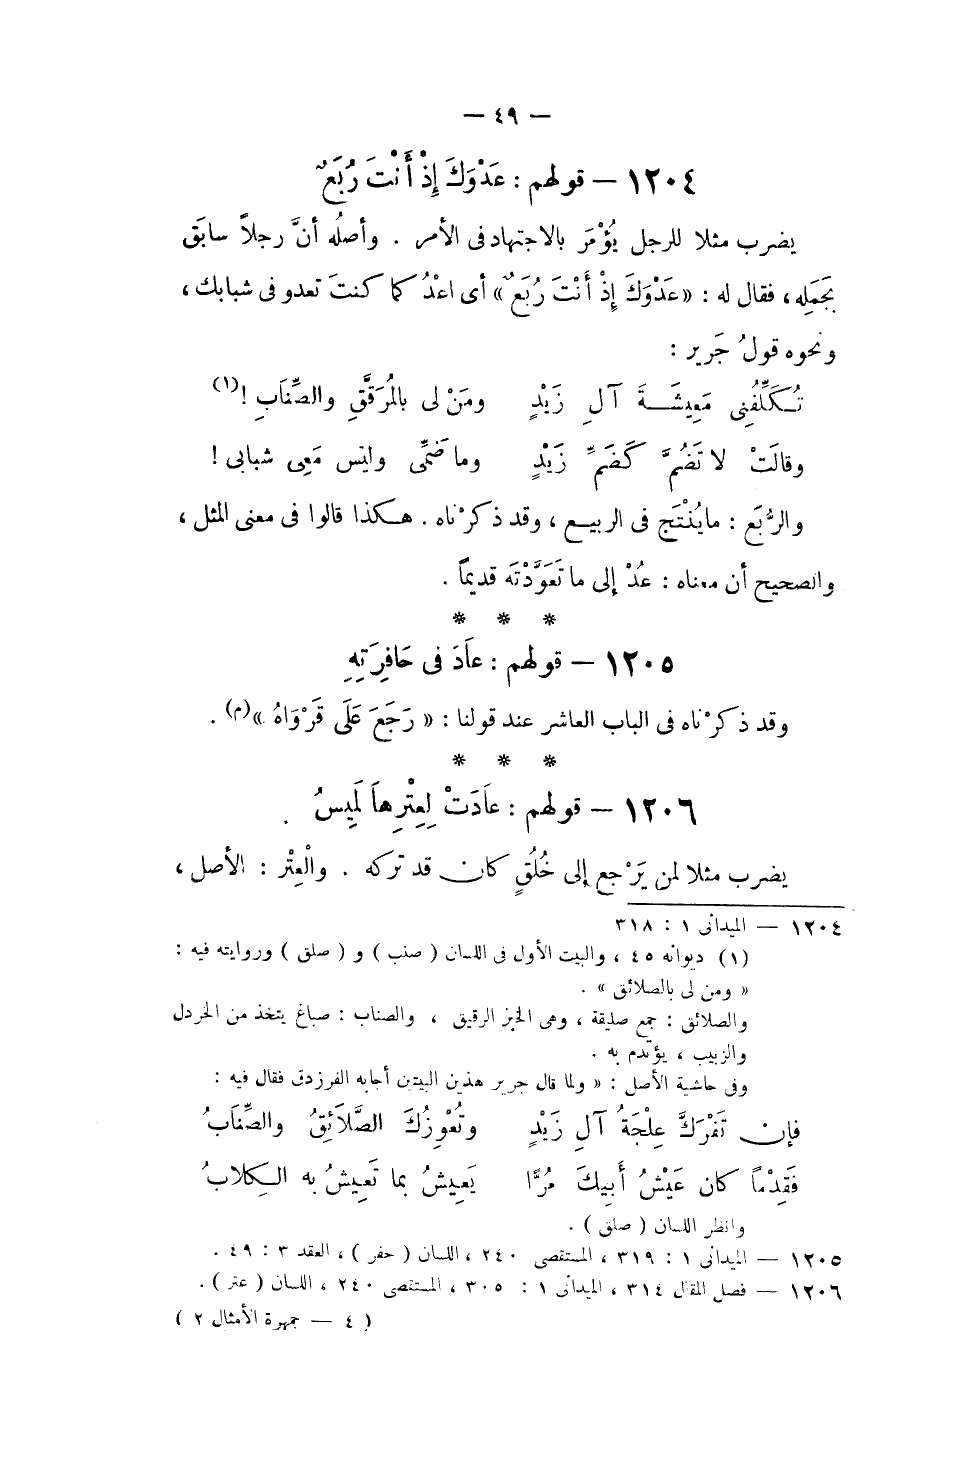 — ٤٩ —
١٢٠٤ — قولهم : عَدْوَكَ إِذْ أَنْتَ رُبَعٌ
يضرب مثلا للرجل يُؤْمَر بالاجتهاد فى الأمر . وأصلُه أنَّ رجلاً سابَق
بجَمَلِه ، فقال له : «عَدْوَكَ إِذْ أَنْتَ رُبَعٌ» أى اعْدُ كما كنتَ تعدو فى شبابك ،
ونحوه قولُ جَرير :
تُكَلِّفُنِى مَعِيشَةَ آلِ زَيْدٍ ومَنْ لى بالمُرَقَّقِ والصِّنَابِ !(١)
وقالَتْ لا تَضُمَّ كَضَمِّ زَيْدٍ وما ضَمِّى وليْس مَعِى شبابى !
والرُّبَع : ما يُنْتَج فى الربيع ، وقد ذكرْناه . هكذا قالوا فى معنى المثل ،
والصحيح أن معناه : عُدْ إلى ما تَعَوَّدْتَه قديمًا .
* * *
١٢٠٥ — قولهم : عَادَ فى حَافِرَتِهِ
وقد ذكرْناه فى الباب العاشر عند قولنا : « رَجَعَ عَلَى قَرْوَاهُ »(م) .
* * *
١٢٠٦ — قولهم : عَادَتْ لِعِتْرِهَا لَمِيسُ .
يضرب مثلا لمن يَرْجع إلى خُلُقٍ كان قد تركه . والْعِتْر : الأصل ،
١٢٠٤ — الميدانى ١ : ٣١٨
(١) ديوانه ٤٥ ، والبيت الأول فى اللسان ( صنب ) و ( صلق ) وروايته فيه :
« ومن لى بالصلائق » .
والصلائق : جمع صليقة ، وهى الخبز الرقيق ، والصناب : صباغ يتخذ من الخردل
والزبيب ، يؤتدم به .
وفى حاشية الأصل : « ولما قال جرير هذين البيتين أجابه الفرزدق فقال فيه :
فإن تَفْرَكَّ عِلْجَةُ آلِ زَيْدٍ وتُعْوِزُكَ الصَّلَائِقُ والصِّنَابُ
فَقِدْماً كان عَيْشُ أَبِيكَ مُرًّا يَعِيشُ بما تَعِيشُ به الكِلابُ
وانظر اللسان ( صلق ) .
١٢٠٥ — الميدانى ١ : ٣١٩ ، المستقصى ٢٤٠ ، اللسان ( حفر ) ، العقد ٣ : ٤٩ .
١٢٠٦ — فصل المقال ٣١٤ ، الميدانى ١ : ٣٠٥ ، المستقصى ٢٤٠ ، اللسان ( عتر ) .
( ٤ — جمهرة الأمثال ٢ )